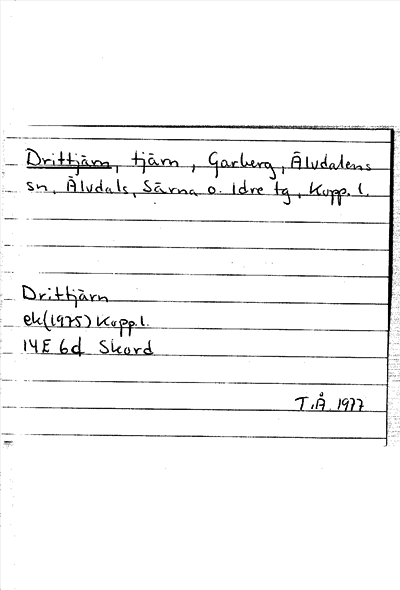 Drittjärn, tjärn, Garberg, Älvdalens
sn, Älvdals, Särna o. Idre tg, Kopp. l.
Drittjärn
ek (1975) Kopp. l.
14E 6d Skord
T.Å. 1977